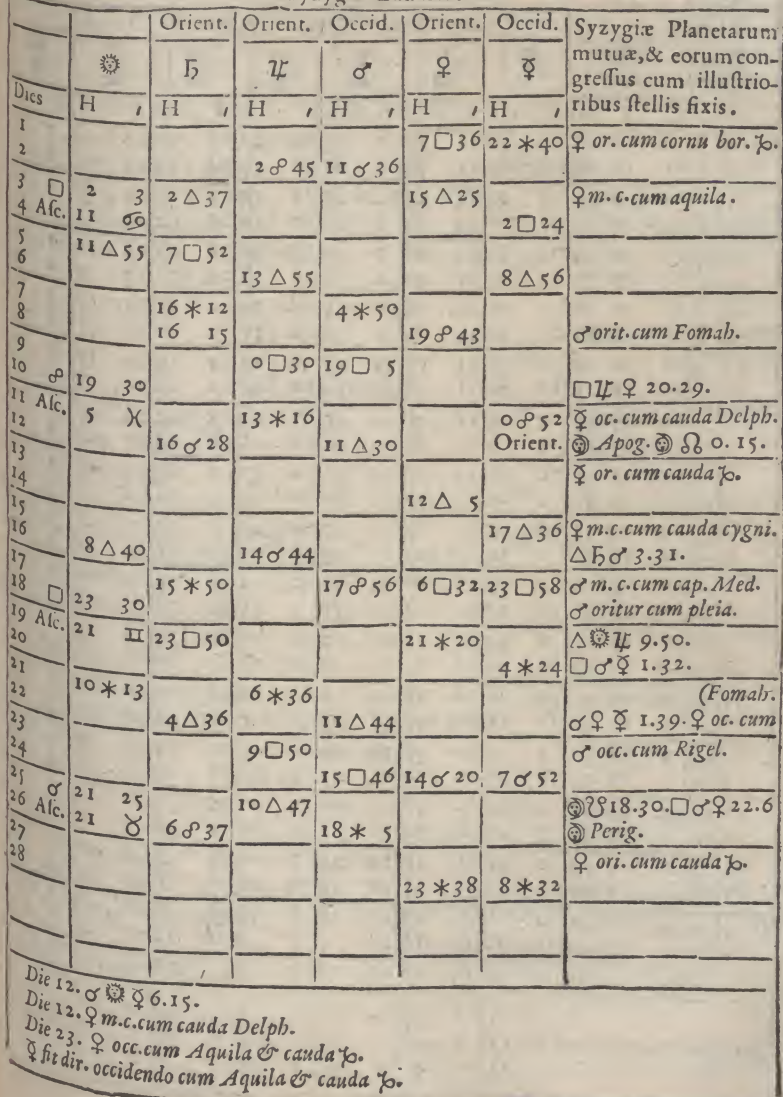 Orient. Orient. Occid. Orient. Occid. Syzygiæ Planetarum
☉ ♄ ♃ ♂ ♀ ☿ mutuæ, & eorum con-
greſſus cum illuſtrio-
Dies H , H , H , H , H , H , ribus ſtellis fixis.
1 7□36 22✶40 ♀ or. cum cornu bor. ♑.
2 2☍45 11☌36
3 □ 2 3 2△37 15△25 ♀ m. c. cum aquila.
4 Aſc. 11 ♋ 2□24
5 11△55 7□52
6 13△55 8△56
7 16✶12 4✶50
8 16 15 19☍43 ♂ orit. cum Fomah.
9 0□30 19□ 5
10 ☍ 19 30 □♃♀ 20.29.
11 Aſc. 5 ♓ 13✶16 0☍52 ☿ oc. cum cauda Delph.
12 16☌28 11△30 Orient. ☽ Apog. ☽ ☊ 0. 15.
13 ☿ or. cum cauda ♑.
14
15 12△ 5
16 17△36 ♀ m. c. cum cauda cygni.
17 8△40 14☌44 △♄♂ 3.31.
18 □ 23 30 15✶50 17☍56 6□32 23□58 ♂ m. c. cum cap. Med.
♂ oritur cum pleia.
19 Aſc. 21 ♊ 23□50 21✶20 △☉♃ 9.50.
20 4✶24 □♂☿ 1.32.
21 10✶13 6✶36 (Fomah.
22 4△36 11△44 ☌♀☿ 1.39. ♀ oc. cum
23 9□50 ♂ occ. cum Rigel.
24 15□46 14☌20 7☌52
25 ☌ 21 25 10△47 ☽☋18.30.□♂♀22.6
26 Aſc. 21 ♉ 6☍37 18✶ 5 ☽ Perig.
27 ♀ ori. cum cauda ♑.
28 23✶38 8✶32
Die 12. ☌☉☿ 6.15.
Die 12. ♀ m. c. cum cauda Delph.
Die 23. ♀ occ. cum Aquila & cauda ♑.
☿ fit dir. occidendo cum Aquila & cauda ♑.